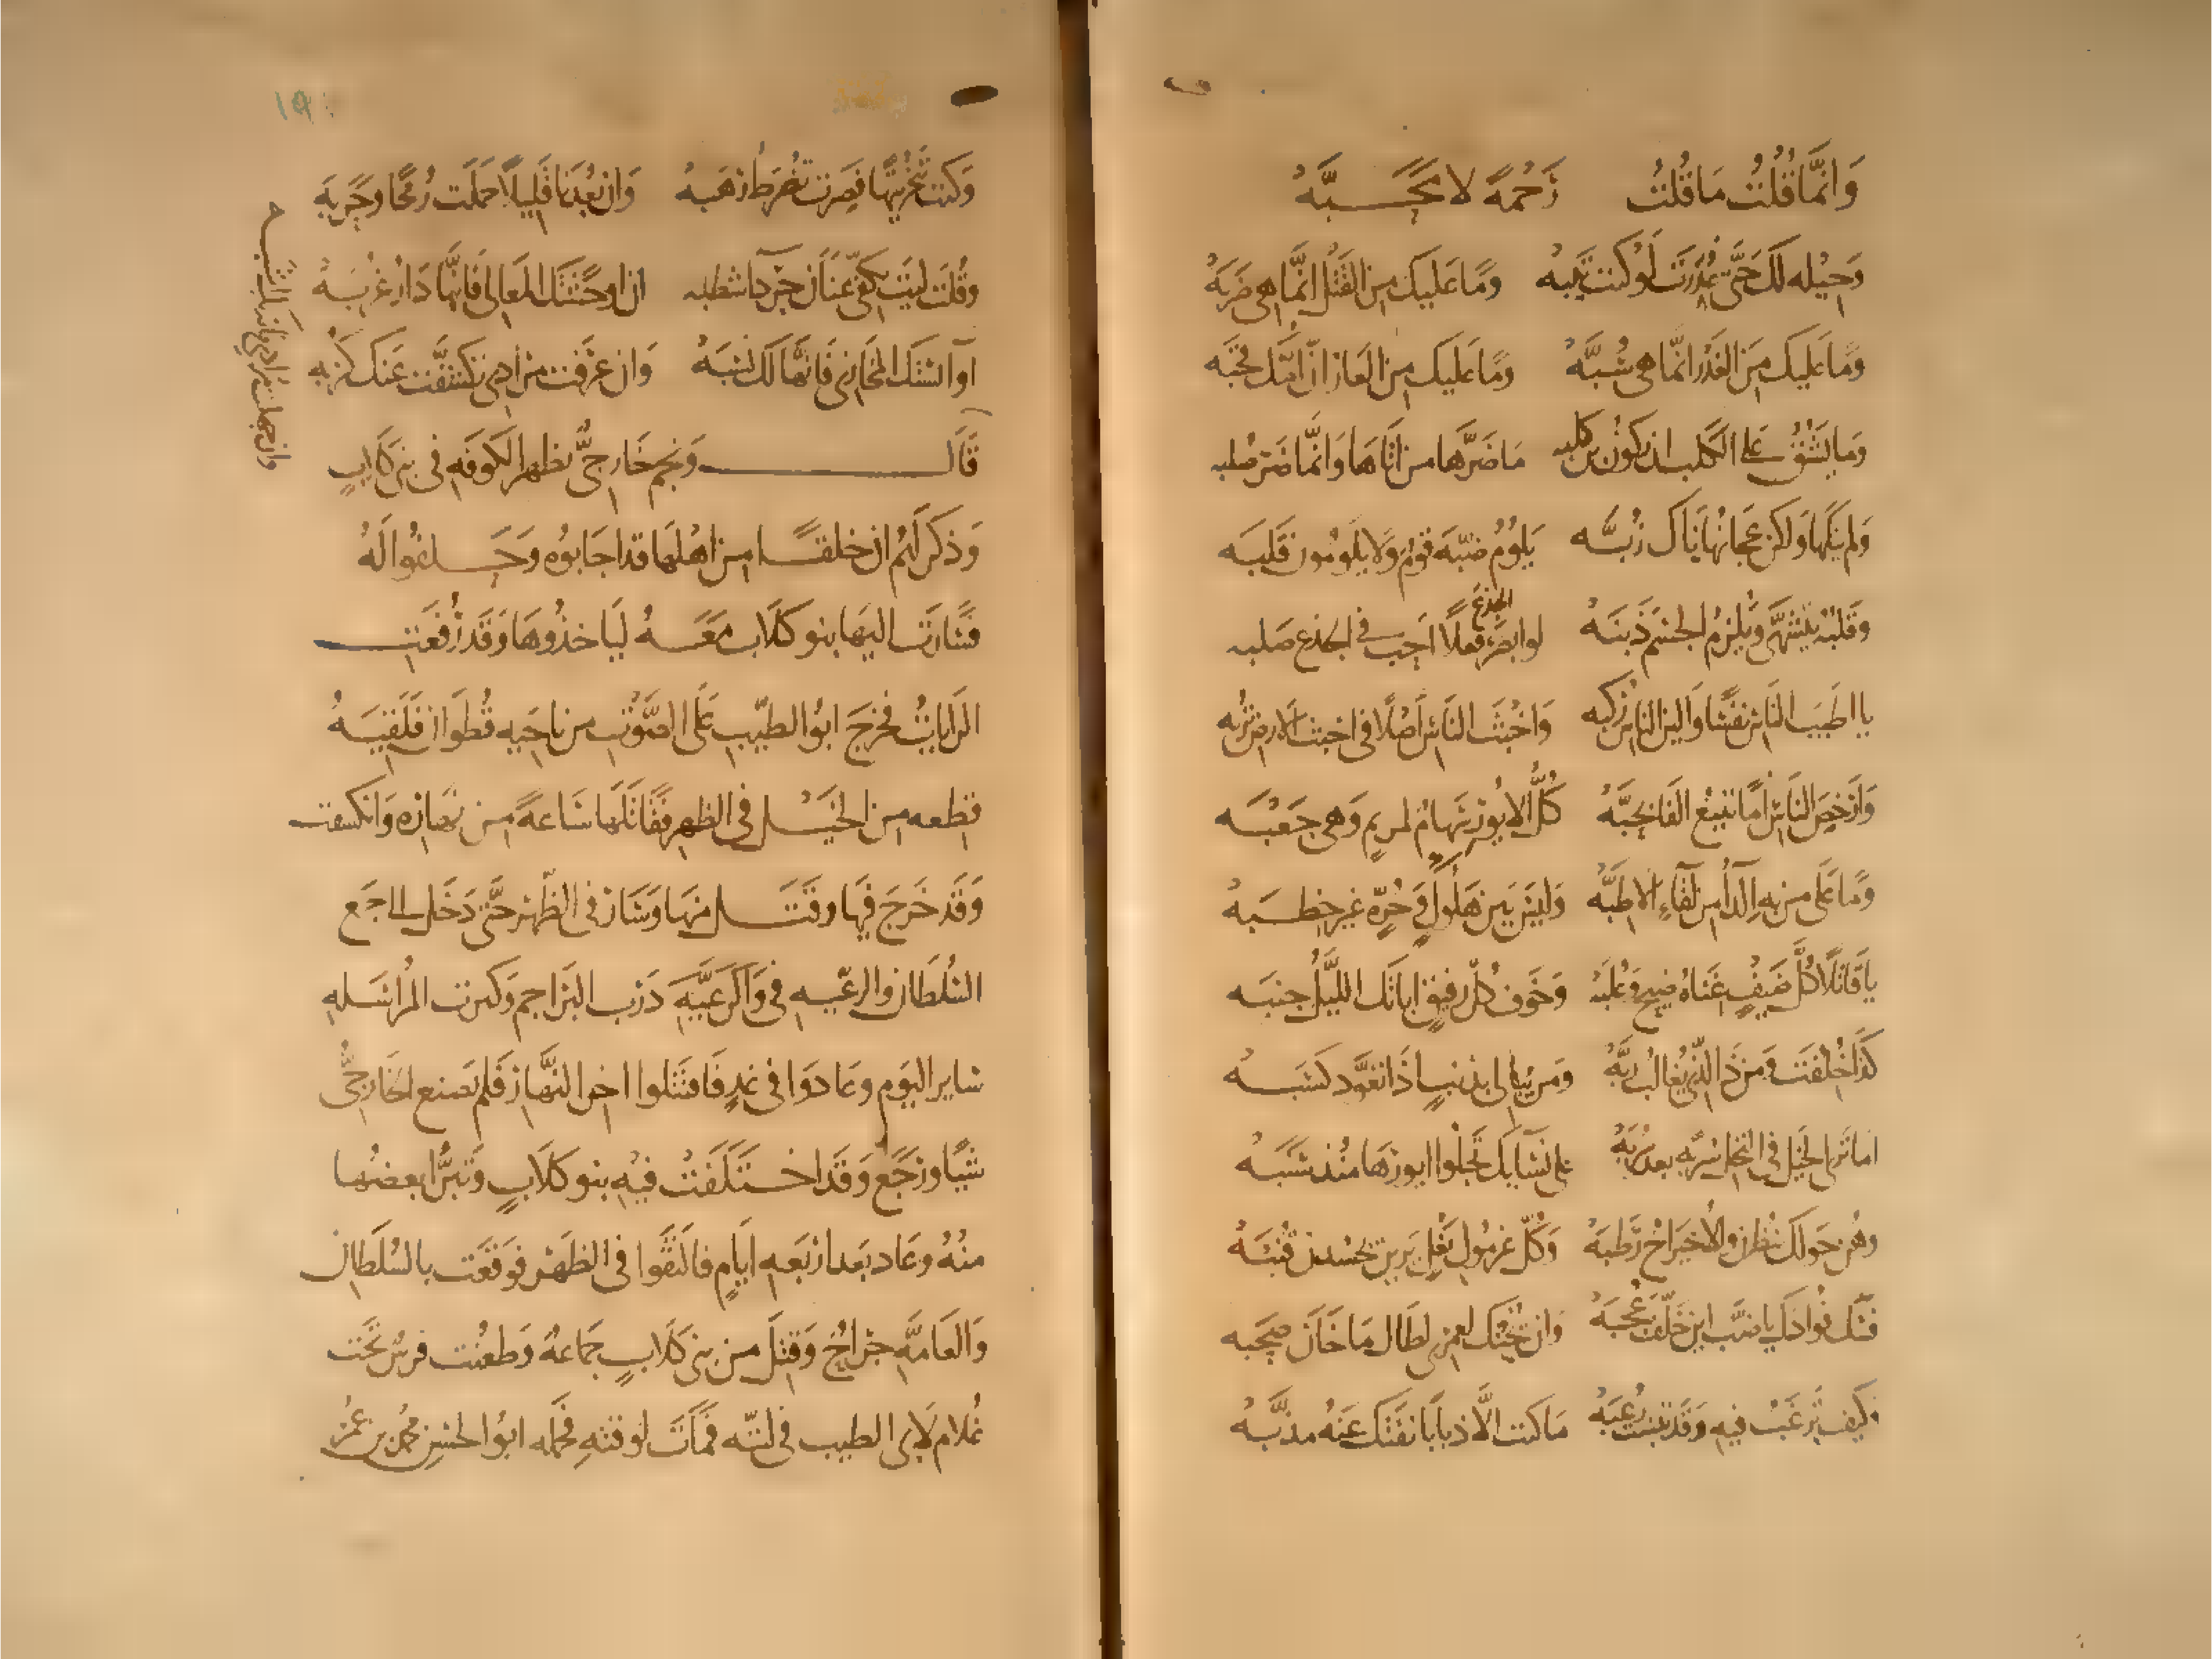 وَانَّمَا قُلْتُ مَا قُلْتُ رَحْمَةً لا مَحَبَّهْ
وَحِيْلَه لَكَ حَتَّى عُذِرْتَ لَوْ كنتَ تِيْبَهْ وَمَا عَلَيكَ مِنَ القَتْلِ انَّمَا هِى ضَرْبَهْ
وَمَا عَلَيكَ مِنَ الغَدْرِ انَّمَا هِىَ سُبَّهْ وَمَا عَلَيكَ مِنَ العَارِ انّ امّكَ قحبَه
وَمَا يَشُقُّ عَلى الكَلبِ ان يَكُونَ بن كلبه مَا ضَرَّهَا من اتَاهَا وَانَّمَا ضَرَّ صُلبه
وَلم يَنِكْهَا وَلكن عِجَانُهَا نَاكَ زُبَّه يَلُومُ ضَبّه قَومٌ وَلَا يَلُومُونَ قَلبَه
وَقَلبُهُ يَتَشَهَّى وَيُلْزِمُ الجسْمَ ذَنبَهُ لو ابصَر الجذعَ فعلًا احَبَّ فى الجذع صَلبه
يا اطيَبَ النَّاسِ نَفْسًا وَالين النَّاسِ رُكبه وَاخبَثَ النَّاسِ اصْلًا فى اخبثِ الارضِ تُربَه
وَارْخَصَ النَّاسِ امًّا تَبِيْعُ الفًا بِحَبَّهْ كُلُّ الايُورِ سِهَامٌ لمريمٍ وَهى جَعْبَه
وَمَا عَلى من بهِ الدَّاءُ مِن لقَاءِ الاطبَّهْ وَليْسَ بَيْن هَلُوكٍ وَحُرَّةٍ غير خِطبَهْ
يَا قَاتلًا كُلَّ ضَيفٍ غَنَاهُ ضيحٌ وَعُلبَهْ وَخَوف كُلّ رَفيقٍ ابَاتَكَ اللَّيْلُ جنبَه
كَذَا خُلِقْتَ وَمَن ذَا الَّذِى يُغَالبُ رَبَّهْ وَمَن يُبَالى بذمٍ اذَا تَعَوَّد كَسبَهُ
امَا تَرَى الخَيْلَ فى النَّخل سُربَه بعد سُربَهْ عَلى نسَائِكَ تَجْلُوا ايورَهَا منذ سَنَبَهْ
وهُنَّ حَولَكَ ينظُرنَ والاُحَيرَاحُ رَطبَهْ وَكُلُّ غرمُولِ بَغْلٍ يَرَيْنَ يحسُدنَ قُنبَهْ
فسَل فُؤادَكَ يَا ضَبّ اين خَلَّفَ عُجبَهْ وَان يَخُنْكَ لعمرى لطَال مَا خَانَ صحبَه
وَكيفَ تَرغَبُ فيهِ وَقَد تَبيّنتَ رُعبَهُ مَا كنتَ الَّا ذبَابًا نفَتكَ عَنهُ مذبَّهْ
١٩
وَكنتَ تَفخَرُ تيهًا فصِرتَ تَضرطُ رَهْبَهْ وَان بعُدنَا قَليلًا حَمَلتَ رُمحًا وحَرْبَه
وَقُلتَ ليتَ بكَفّى عنَانَ جردَاءَ شطبه ان اوحَشَتكَ المعَالى فَانَّهَا دَارُ غُربَهْ
اَو آنسَتكَ المخَازى فَانَّهَا لَكَ نسبَهْ وَان عرَفتَ مُرَادى تكَشَّفَت عَنكَ كُربَه
وان جهلت مرادى فانه بك اشبه
قَالَ وَنجم خَارجىٌّ بظهر الكوفَهِ فى بنى كلَابٍ
وَذكرَ لهُم ان خلقًا من اهْلهَا قد اجَابُوه وَحَلفُوا لَهُ
فسَارَت اليهَا بنو كلَاب مَعَهُ ليَاخذُوهَا وَقَد رُفعَت
الرَايَاتُ فخرجَ ابُو الطيّبِ عَلى الصَّوْتِ من ناحيهِ قُطوَان فَلَقِيَهُ
قطعه من الخَيْل فى الظهر فَقَاتَلَهَا سَاعهً من نهَارهِ وَانكسفت
وَقَد خَرجَ فيهَا وقَتَل منهَا وَسَارَ فى الظّهر حَتَّى دَخَل الى جمع
السُلطَان والرعّيه فى دَرب البَرَاجم وَكثرت المُرَاسَله
سَاير اليَوم وعَادوا فى غدٍ فَاقتَتلوا اخر النَّهَار فَلم يَصنع الخَارجىُّ
شيًا ورجَعَ وَقَد اختَلَفَت فيْهِ بنو كلَابٍ وَتبرَّا بعضُهَا
منهُ وعَادَ بَعد ارْبَعهِ ايَامٍ فالتَقَوا فى الظَهر فوَقعَت بالسُلطَان
وَالعَامَّهِ جرَاحٌ وَقتلَ من بنى كلَابٍ جمَاعه وَطعنت فرسٌ تَحْت
غُلام لَابى الطيب فى لبّته فمَاتَ لوقتهِ فحَمله ابُو الحسَنِ محمد بن عُمَر